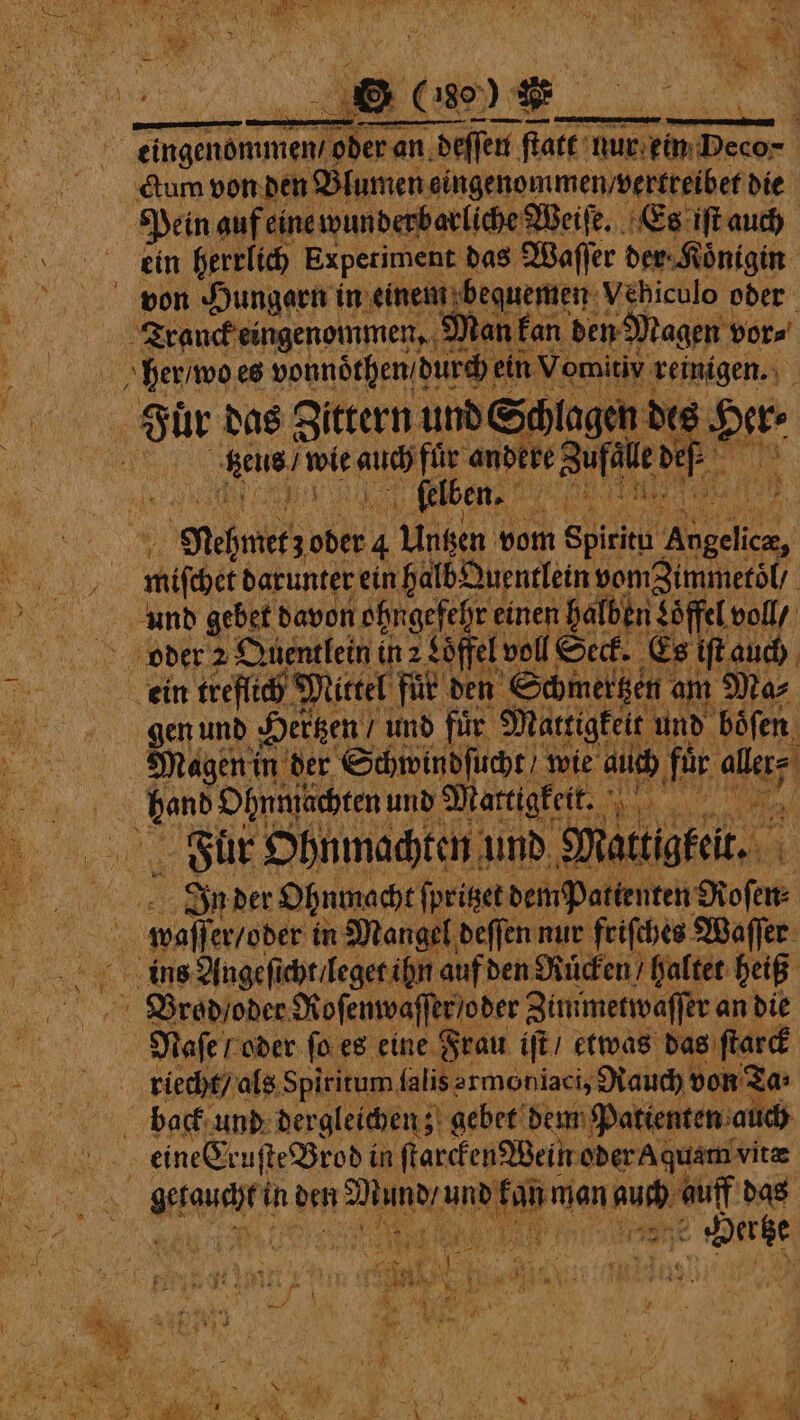 (180)
eingenommen/ oder an deſſen ſtatt nur ein Deco-
ctum von den Blumen eingenommen/vertreibet die
Pein auf eine wunderbarliche Weiſe. Es iſt auch
ein herrlich Experiment das Waſſer der Koͤnigin
von Hungarn in einem bequemen Vehiculo oder
Tranck eingenommen. Man kan den Magen vor-
her/wo es vonnoͤthen/durch ein Vomitiv reinigen.
Fuͤr das Zittern und Schlagen des Her-
tzens/ wie auch fuͤr andere Zufaͤlle deſ-
ſelben.
Nehmet 3 oder 4 Untzen vom Spiritu Angelicæ,
miſchet darunter ein halb Quentlein vom Zimmetoͤl/
und gebet davon ohngefehr einen halben Loͤffel voll/
oder 2 Quentlein in 2 Loͤffel voll Seck. Es iſt auch
ein treflich Mittel fuͤr den Schmertzen am Ma-
gen und Hertzen / und fuͤr Mattigkeit und boͤſen
Magen in der Schwindſucht / wie auch fuͤr aller-
hand Ohnmachten und Mattigkeit.
Fuͤr Ohnmachten und Mattigkeit.
In der Ohnmacht ſpritzet dem Patienten Roſen-
waſſer/oder in Mangel deſſen nur friſches Waſſer
ins Angeſicht/leget ihn auf den Ruͤcken / haltet heiß
Brod/oder Roſenwaſſer/oder Zimmetwaſſer an die
Naſe / oder ſo es eine Frau iſt / etwas das ſtarck
riecht/ als Spiritum ſalis armoniaci, Rauch von Ta-
back und dergleichen; gebet dem Patienten auch
eine Cruſte Brod in ſtarcken Wein oder Aquam vitæ
getaucht in den Mund/ und kan man auch auff das
Hertze